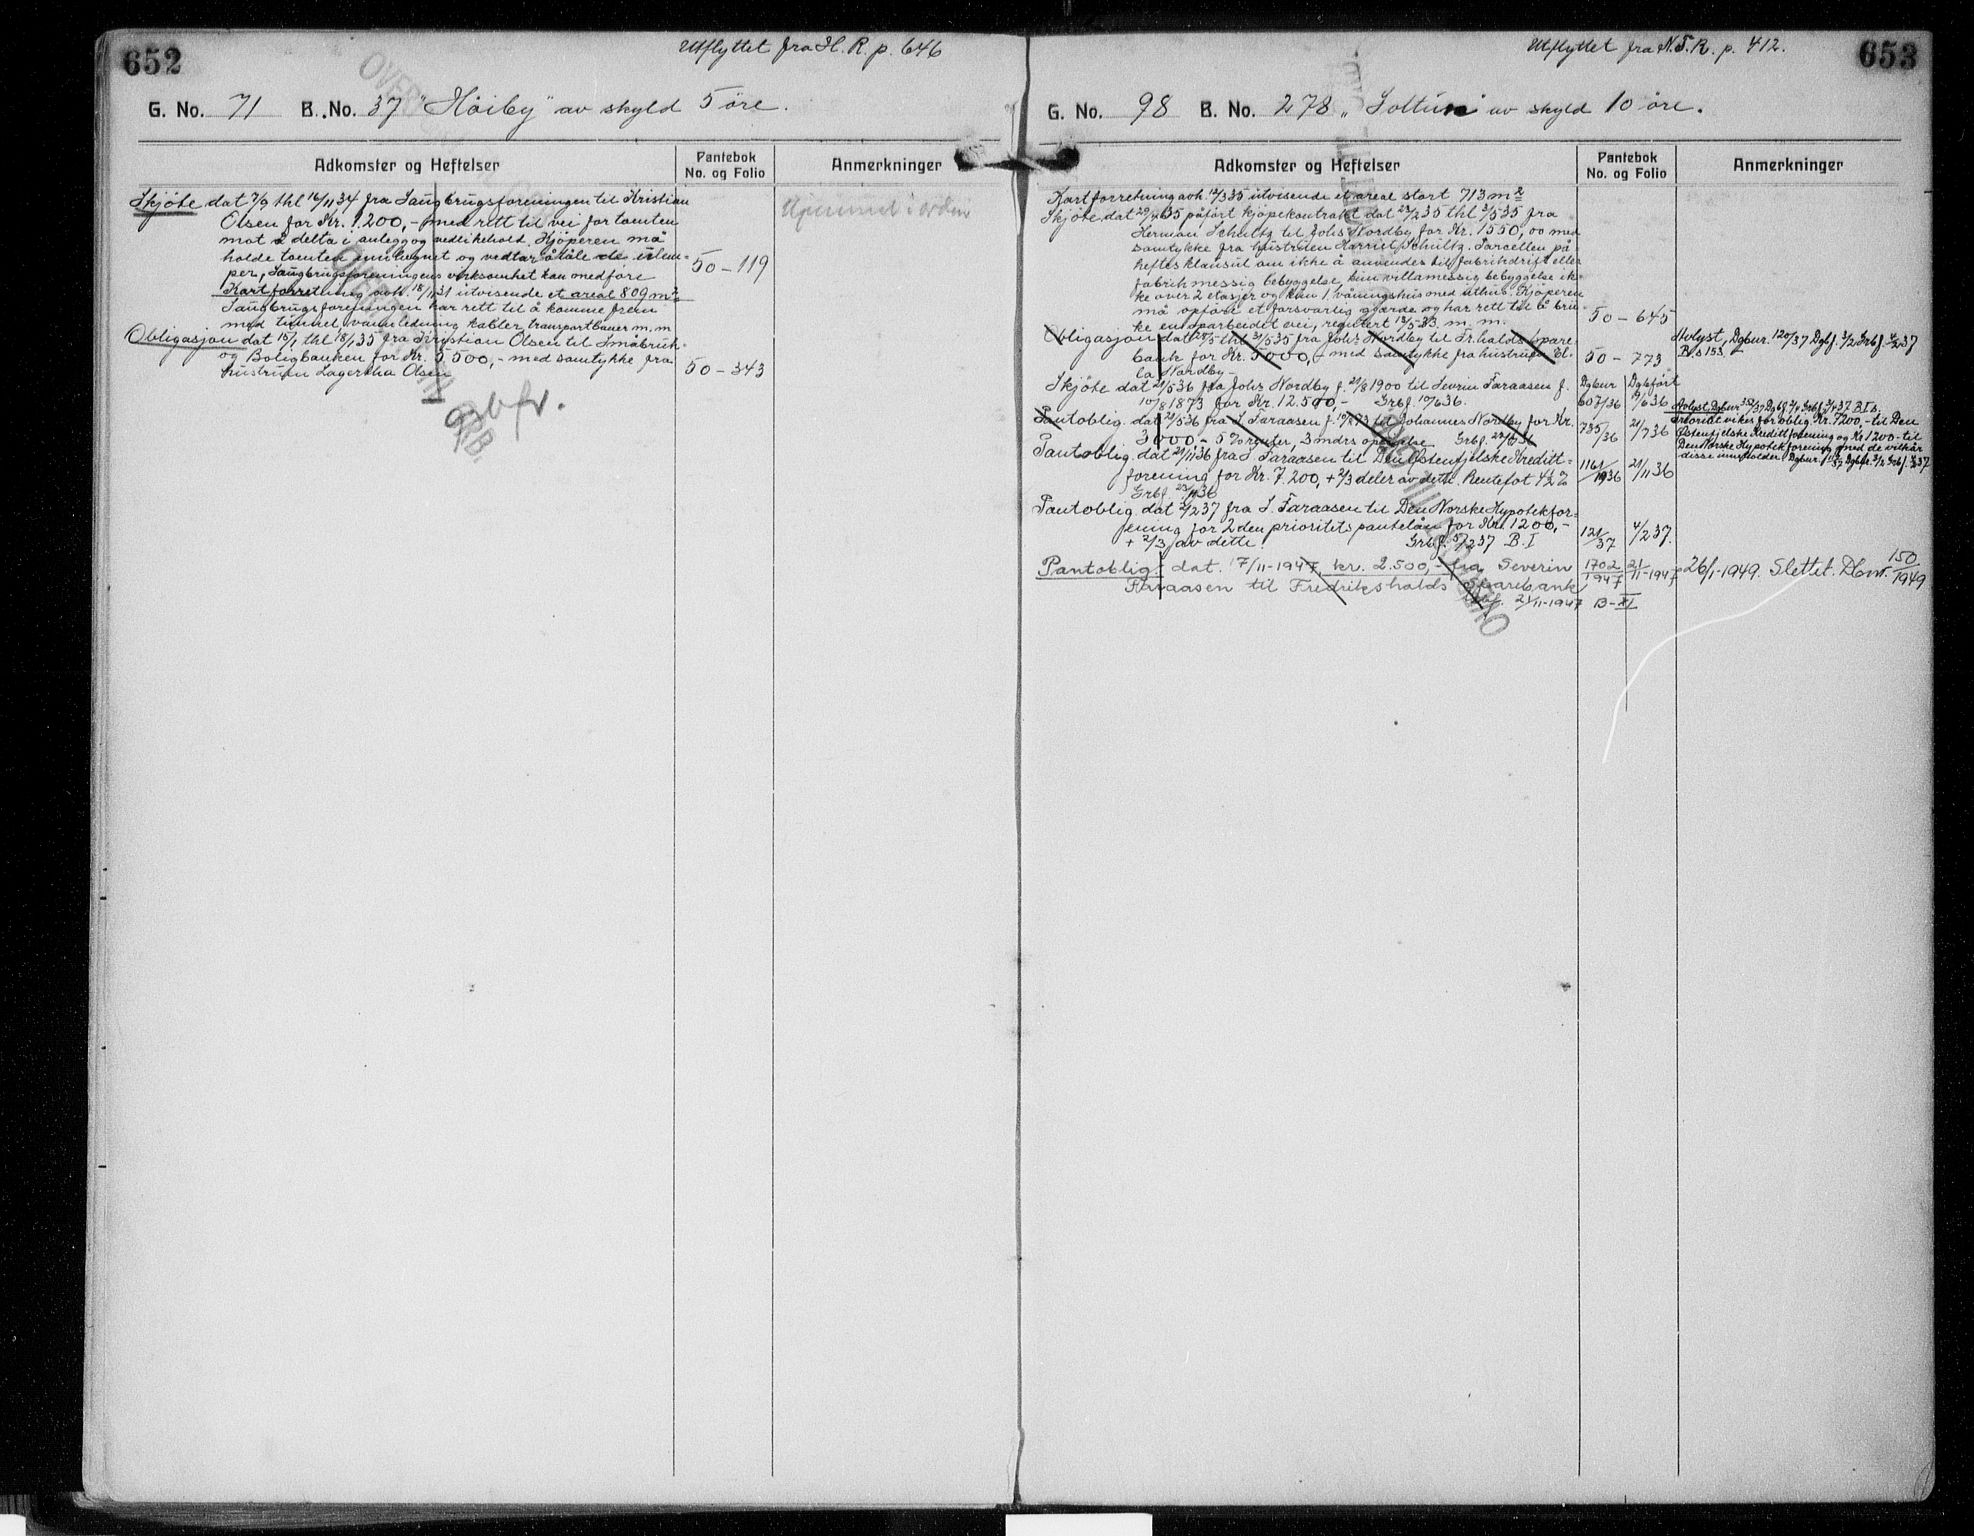 652
Utflyttet fra H. R. p. 646
G. No. 71 B. No. 37 "Höiby" av skyld 5 öre.
Adkomster og Heftelser
Pantebok
No. og Folio
Anmerkninger
Skjöte dat 7/9 thl 16/11 34 fra Saugbrugsforeningen til Kristian
Olsen for Kr. 1.200,- med rett til vei for tomten
mot å delta i anlegg og vedlikehold. Kjöperen må
holde tomten innhegnet og vedtar å tåle de ulem-
per, Saugbrugsforeningens virksomhet kan medföre
50 – 119
Hjemmel i orden
Kartforretning avh. 18/11 31 utvisende et areal 809 m2
Saugbrugsforeningen har rett til å komme frem
med tunnel, vannledning kabler transportbaner m.m
Obligasjon dat 15/1 thl 18/1 35 fra Kristian Olsen til Småbruk-
og Boligbanken for Kr. 5.500,- med samtykke fra
hustruen Lagertha Olsen
50 – 343
OVERF
GRB.
653
Utflyttet fra N.T.R. p. 412.
G. No. 98 B. No. 278 „Soltun" av skyld 10 öre.
Adkomster og Heftelser
Pantebok
No. og Folio
Anmerkninger
Kartforretning avh. 12/3 35 utvisende et areal stort 713 m2
Skjöte dat 29/4 35 påfört kjöpekontrakt dat 28/2 35 thl 3/5 35 fra
Herman Schultz til Johs Nordby for Kr. 1550,00 med
samtykke fra hustruen Harriet Schultz. Parcellen på-
heftes klausul om ikke å anvendes til fabrikdrift eller
fabrikmessig bebyggelse, kun villamessig bebyggelse ik-
ke over 2 etasjer og kun 1 våningshus med uthus. Kjöperen
må opföre et forsvarlig gjærde og har rett til å bru-
ke en oparbeidet vei, regulert 12/5 33. m. m.
50 – 645
Obligasjon dat 28/5 thl 31/5 35 fra Johs Nordby til Fr.halds Spare-
bank for Kr. 5000,- med samtykke fra hustruen El-
la Nordby-
50 – 773
Avlyst, Dgbnr. 120/37 Dgbf. 3/2 Grbf. 4/2 37
B.I s 153
Skjöte dat 29/5 36 fra Johs Nordby f. 21/8 1900 til Sevrin Faraasen f.
10/8 1873 for Kr. 12.500,- Grbf. 10/6 36.
Dgbnr
607/36
Dgbfört
9/6 36
Pantoblig. dat 29/5 36 fra S. Faraasen f. 10/8 73 til Johannes Nordby for Kr.
3000,- 5 % renter, 3 mndrs opsigelse Grbf. 23/7 36
735/36
21/7 36
Avlyst, Dgbnr 352/37 Dgbf. 3/4 Grbf. 3/4 37 B.I s.
Prioritet viker for oblig. Kr. 7200,- til Den
Østenfjelske Kreditforening og Kr 1200,- til
Den Norske Hypotekforening med de vilkår
disse inneholder Dgbnr. Dgbf. 3/2 Grbf. 4/2 37
Pantoblig. dat 20/11 36 fra S. Faraasen til Den Østenfjelske Kreditt-
forening for Kr. 7.200,- + 2/3 deler av dette. Rentefot 4½%
Grbf. 23/11 36
1161/1936
21/11 36
Pantoblig. dat 2/2 37 fra S. Faraasen til Den Norske Hypotekfor-
jening for 2den prioritets pantelån for Kr. 1200,-
+ 2/3 av dette. Grbf. 5/2 37 B.I
121/37
4/2 37.
Pantoblig. dat. 17/11-1947, kr. 2.500,- fra Severin
Faraasen til Fredrikshalds Sparebank
Grbf. 21/11-1947 B-XI
1702/1947
21/11-1947
26/1-1949. Slettet. Dbnr. 150/1949